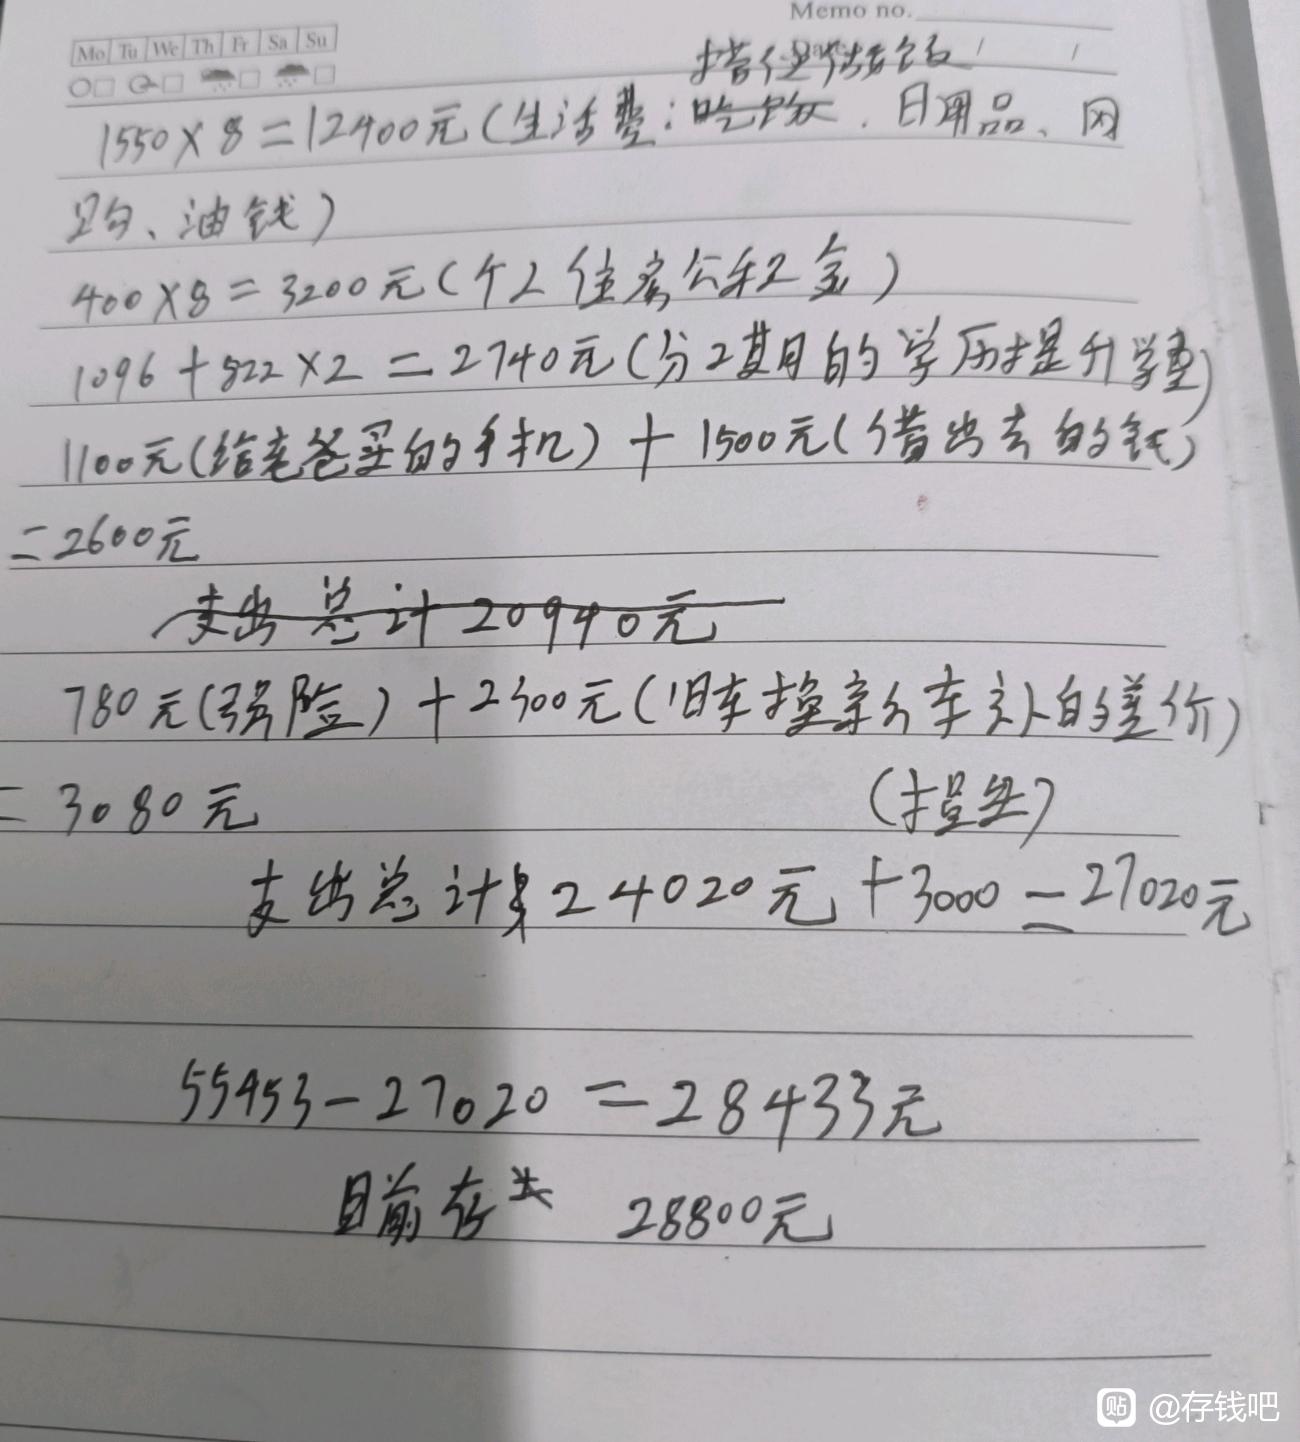 Memo no.
Mo Tu We Th Fr Sa Su
搭伙
1550×8=12400元(生活费:吃饭、日用品、网
购、油钱)
400×8=3200元(个人住房公积金)
1096+822×2=2740元(分2期的学历提升学费)
1100元(给老爸买的手机)+1500元(借出去的钱)
=2600元
支出总计20940元
780元(强险)+2300元(旧车换亲人车补的差价)
=3080元
(捏坐)
支出总计 24020元+3000=27020元
55453-27020=28433元
目前存款 28800元
贴 @存钱吧